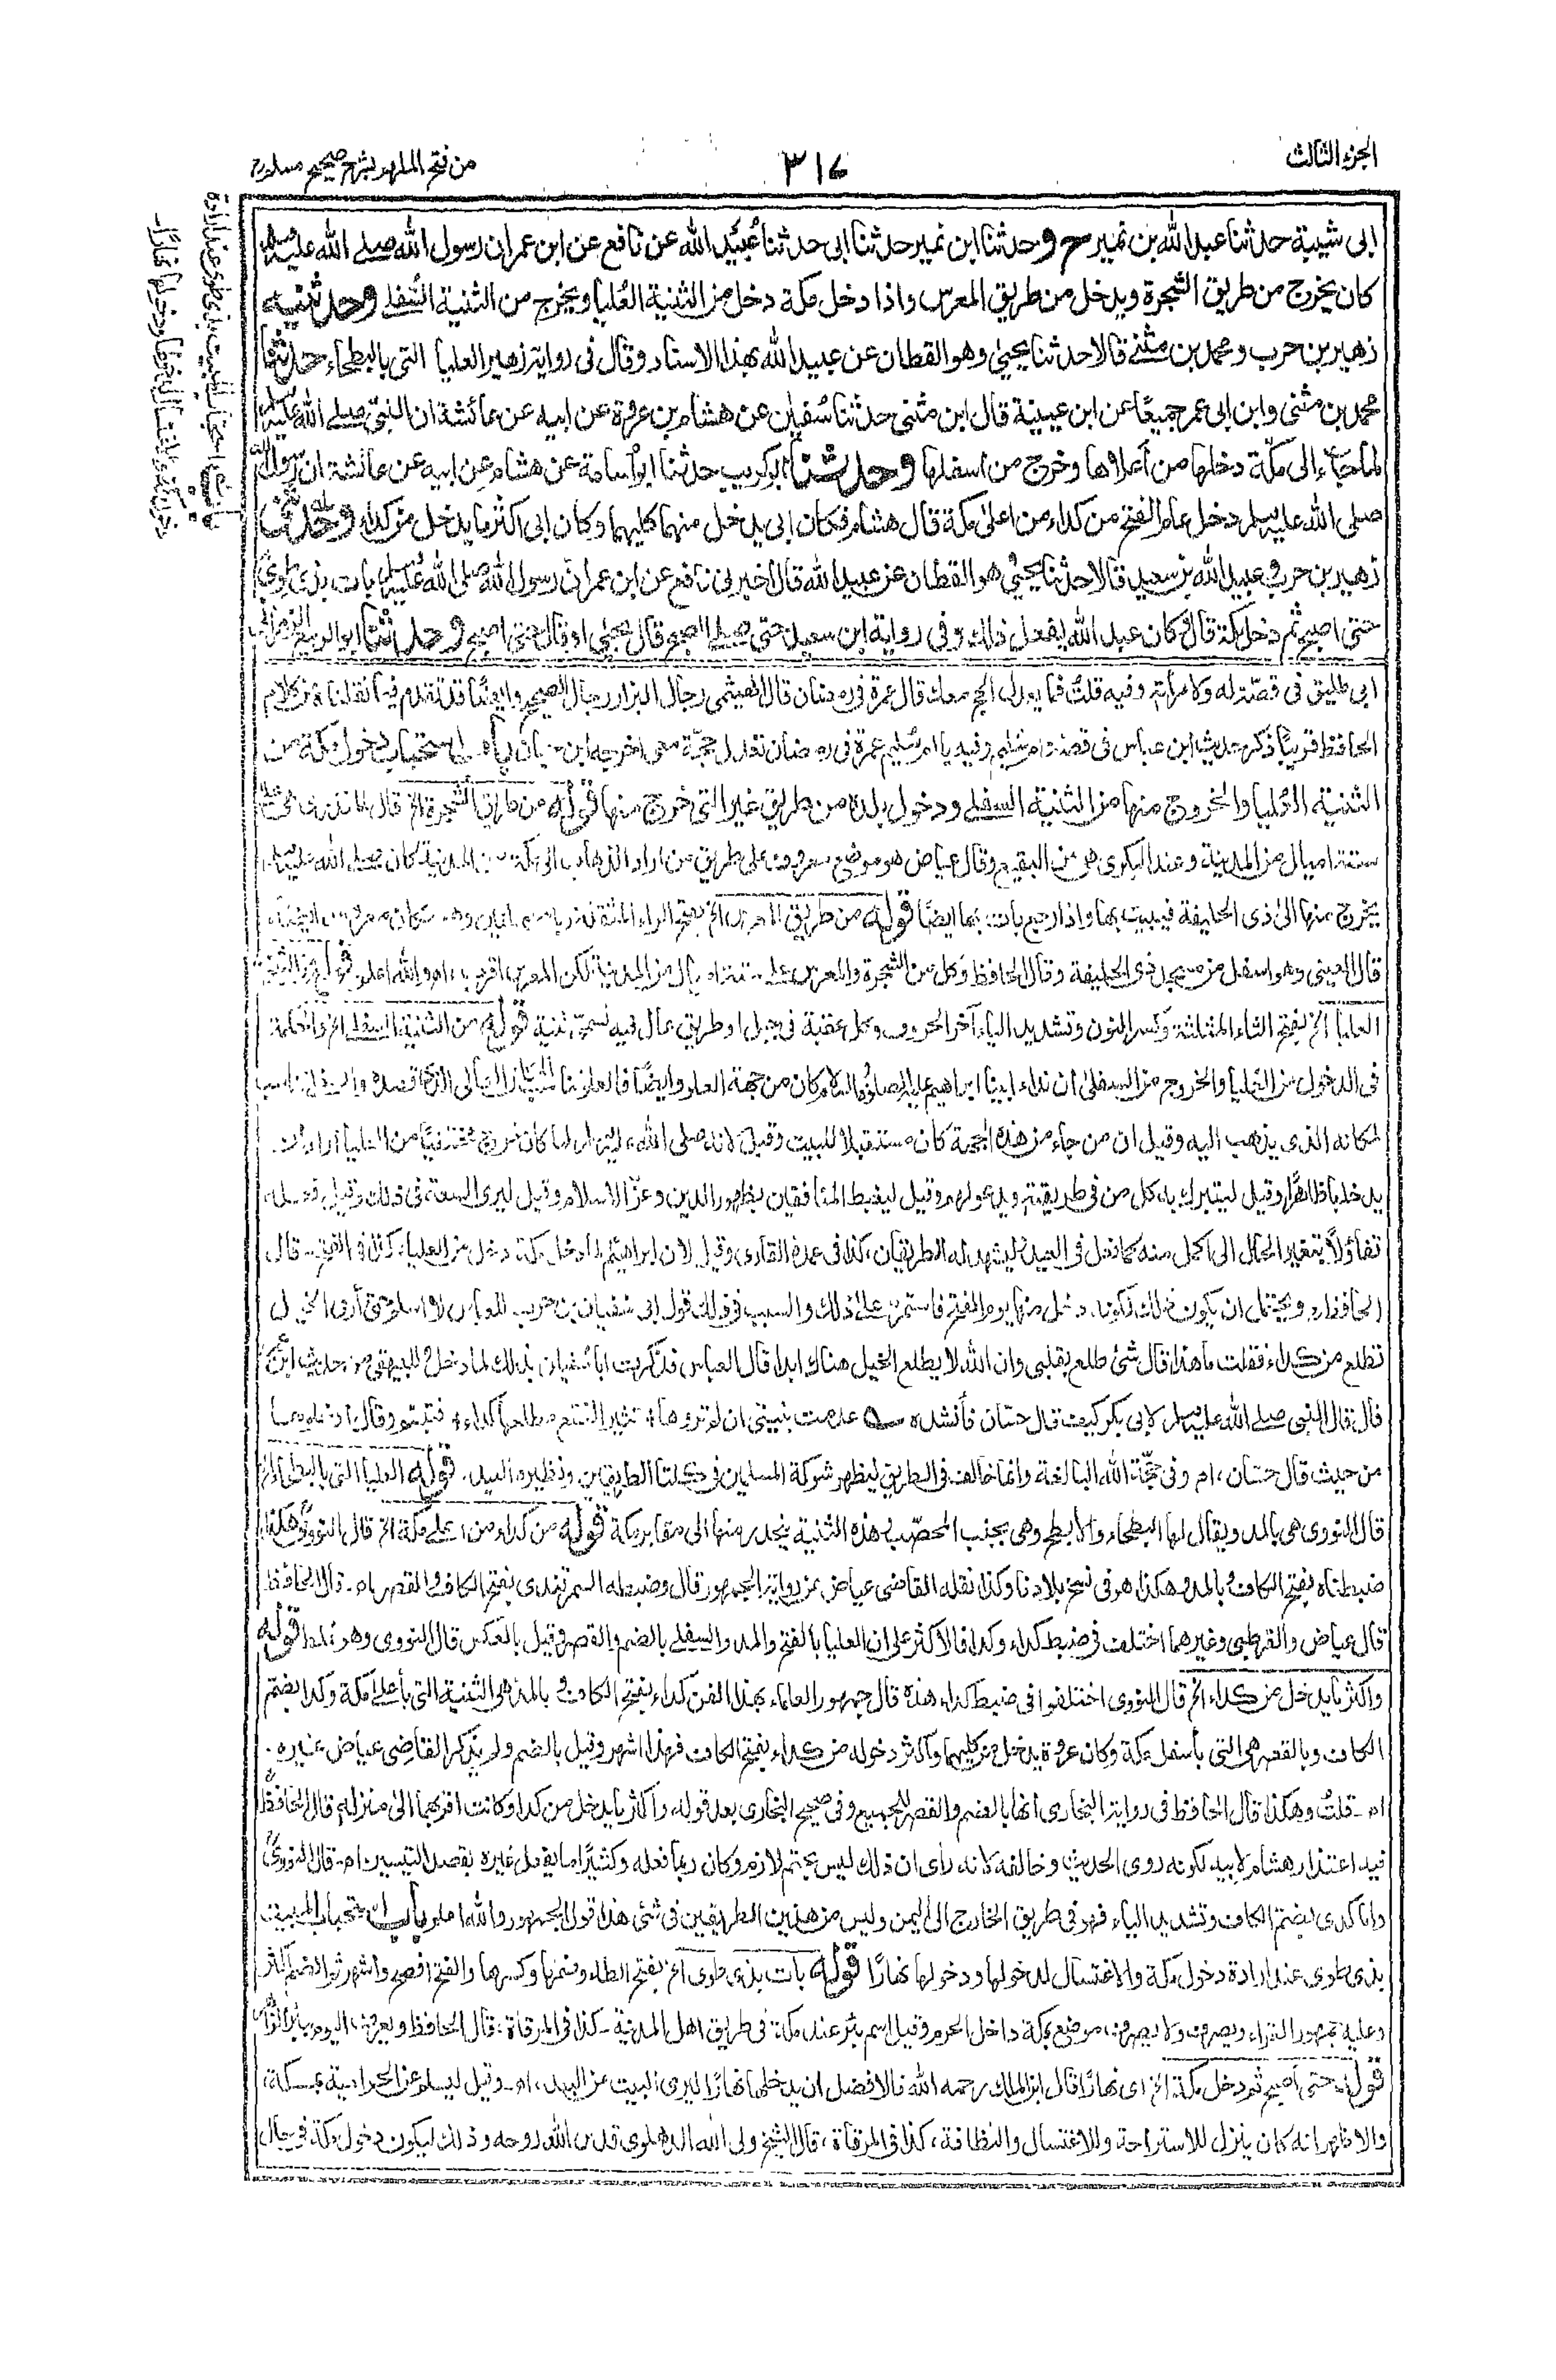 الجزء الثالث
٣١٧
من فتح الملهم بشرح صحيح مسلم
ابى شيبة حدثنا عبد الله بن نمير ح وحدثنا ابن نمير حدثنا ابى حدثنا عُبَيد الله عن نافع عن ابن عمر ان رسول الله صلى الله عليه وسلم
كان يخرج من طريق الشجرة ويدخل من طريق المعرس واذا دخل مكة دخل من الثنية العُليا ويخرج من الثنية السُّفلى وحدثنيه
زهير بن حرب ومحمد بن مثنى قالا حدثنا يحيى وهو القطان عن عبيد الله بهذا الاسناد وقال فى رواية زهير العليا التى بالبطحاء حدثنا
محمد بن مثنى وابن ابى عمر جميعًا عن ابن عيينة قال ابن مثنى حدثنا سُفيان عن هشام بن عروة عن ابيه عن عائشة ان النبى صلى الله عليه وسلم
لما جاء الى مكّة دخلها من اعلاها وخرج من اسفلها وحدثنا ابو كريب حدثنا ابو اُسامة عن هشام عن ابيه عن عائشة ان رسول الله
صلى الله عليه وسلم دخل عام الفتح من كداء من اعلى مكة قال هشام فكان ابى يدخل منهما كليهما وكان ابى اكثر ما يدخل من كداء وحدثنا
زهير بن حرب وعبيد الله بن سعيد قالا حدثنا يحيى هو القطان عن عبيد الله قال اخبرنى نافع عن ابن عمر ان رسول الله صلى الله عليه وسلم بات بذى طوى
حتى اصبح ثم دخل مكة قال وكان عبد الله يفعل ذلك وفى رواية ابن سعيد حتى صلى الصبح قال يحيى او قال حتى اصبح وحدثنا ابو الربيع الزهرانى
ابى طليق فى قصّة له ولامرأته وفيه قلت فما يعدل الحج معك قال عمرة فى رمضان قال الهيثمى رجال البزار رجال الصحيح وايضًا قد تقدم فيما نقلناه من كلام
الحافظ قريبًا ذكر حديث ابن عباس فى قصة ام سليم وفيه يا ام سُليم عمرة فى رمضان تعدل حجّة معى اخرجه ابن حبان باب استحباب دخول مكة من
الثنية العُليا والخروج منها من الثنية السفلى ودخول بلده من طريق غير التى خرج منها قوله من طريق الشجرة الخ قال المنذرى هى على
ستة اميال من المدينة وعند البكرى هى من البقيع وقال عياض هو موضع معروف على طريق من اراد الذهاب الى مكة من المدينة كان صلى الله عليه وسلم
يخرج منها الى ذى الحليفة فيبيت بها واذا رجع بات بها ايضًا قوله من طريق المعرس الخ بفتح الراء المثقلة
قال العينى وهو اسفل من مسجد ذى الحليفة وقال الحافظ وكل من الشجرة والمعرس على ستة اميال من المدينة لكن المعرس اقرب اه والله اعلم قوله من الثنية
العليا الخ بفتح الثاء المثلثة وكسر النون وتشديد الياء آخر الحروف وكل عقبة فى جبل او طريق عال فيه تسمى ثنية قوله من الثنية السفلى الخ والحكمة
فى الدخول من العُليا والخروج من السفلى ان نداء ابينا ابراهيم عليه الصلوة والسلام كان من جهة العلو وايضًا فالعلو تناسب للمكان العالى الذى قصده والسفلى تناسب
لمكانه الذى يذهب اليه وقيل ان من جاء من هذه الجهة كان مستقبلا للبيت وقيل لانه صلى الله عليه وسلم لما كان خرج مختفيًا من العليا اراد ان
يدخلها ظاهرًا وقيل ليتبرك به كل من فى طريقته ويدعو لهم وقيل ليغيظ المنافقين بظهور الدين وعزّ الاسلام وقيل ليرى السعة فى ذلك وقيل فعله
تفاؤلاً بتغير الحال الى اكمل منه كما فعل فى العيد وليشهد له الطريقان، كذا فى عمدة القارى وقيل لان ابراهيم لما دخل مكة دخل من العليا، كذا فى الفتح - قال
الحافظ رح ويحتمل ان يكون ذلك لكونه دخل منها يوم الفتح فاستمر على ذلك والسبب فى ذلك قول ابى سُفيان بن حرب للعباس لا اسلم حتى أرى الخيل
تطلع من كداء فقلت ما هذا قال شئ طلع بقلبى وان الله لا يطلع الخيل هناك ابدا قال العباس فذكّرت ابا سُفيان بذلك لما دخل وللبيهقى من حديث ابن عمر
قال قال النبى صلى الله عليه وسلم لابى بكر كيف قال حسّان فأنشده عدمت بنيتى ان لم تروها؛ تثير النقع مطلعها كداء؛ فتبسّم وقال ادخلوها
من حيث قال حسّان، اه وفى حجّة الله البالغة وانما خالف فى الطريق ليظهر شوكة المسلمين فى كلتا الطريقين ونظيره العيد. قوله العليا التى بالبطحاء الخ
قال النووى هى بالمد ويقال لها البطحاء والأبطح وهى بجنب المحصّب وهذه الثنية ينحدر منها الى مقابر مكة قوله من كداء من اعلى مكة الخ قال النووى هكذا
ضبطناه بفتح الكاف وبالمد وهكذا هو فى نسخ بلادنا وكذا نقله القاضى عياض عن رواية الجمهور قال وضبطه السمرقندى بفتح الكاف والقصر اه - قال الحافظ
قال عياض والقرطبى وغيرهما اختلف فى ضبط كداء وكدا فالأكثر على ان العليا بالفتح والمد والسفلى بالضم والقصر وقيل بالعكس قال النووى وهو غلط قوله
واكثر ما يدخل من كداء الخ قال النووى اختلفوا فى ضبط كداء هذه قال جمهور العلماء بهذا الفن كداء بفتح الكاف وبالمد هى الثنية التى بأعلى مكة وكدا بضم
الكاف وبالقصر هى التى بأسفل مكة وكان عروة يدخل من كليهما وأكثر دخوله من كداء بفتح الكاف فهذا اشهر وقيل بالضم ولم يذكر القاضى عياض غيره.
اه - قلتُ وهكذا قال الحافظ فى رواية البخارى انها بالضم والقصر للجميع وفى صحيح البخارى بعد قوله واكثر ما يدخل من كدا وكانت اقربهما الى منزله قال الحافظ
فيه اعتذار هشام لابيه لكونه روى الحديث وخالفه لانه رأى ان ذلك ليس بحتم لازم وكان ربما فعله وكثيرًا ما يفعل غيره بقصد التيسير اه - قال النووى
واما كدى بضم الكاف وتشديد الياء فهو فى طريق الخارج الى اليمن وليس من هذين الطريقين فى شئ هذا قول الجمهور والله اعلم باب استحباب المبيت
بذى طوى عند ارادة دخول مكة والاغتسال لدخولها ودخولها نهارًا قوله بات بذى طوى الخ بفتح الطاء وضمها وكسرها والفتح افصح واشهر ثم الضم اكثر
وعليه جمهور القراء ويصرف ولا يصرف، موضع بمكة داخل الحرم وقيل اسم بئر عند مكة فى طريق اهل المدينة - كذا فى المرقاة؛ قال الحافظ ويعرف اليوم
قوله حتى أصبح ثم دخل مكة الخ اى نهارًا قال ابن الملك رحمه الله فالافضل ان يدخلها نهارًا ليرى البيت من البعد، اه - وقيل ليسلم عن الحرامية بمكة،
والاظهر انه كان ينزل للاستراحة وللاغتسال والنظافة، كذا فى المرقاة، قال الشيخ ولى الله الدهلوى قدس الله روحه وذلك ليكون دخول مكة فى حال
باب استحباب المبيت بذى طوى عند ارادة
دخول مكة والاغتسال لدخولها ودخولها نهارًا.